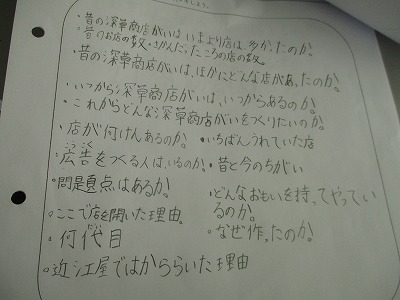 ・昔の深草商店がいは、いまより店は、多かたのか。
・昔のお店の数・さかんだったころの店の数。
・昔の深草商店がいは、ほかにどんな店があったのか。
・いつから深草商店がいは、いつからあるのか。
・これからどんな深草商店がいをつくりたいのか。
・店が何けんあるのか。 ・いちばんうれていた店
・広告をつくる人は、いるのか。・昔と今のちがい
・問題点はあるか。 ・どんなおもいを持ってやっているのか。
・ここで店を開いた理由。 ・なぜ作ったのか。
・何代目
・近江屋ではたらいた理由